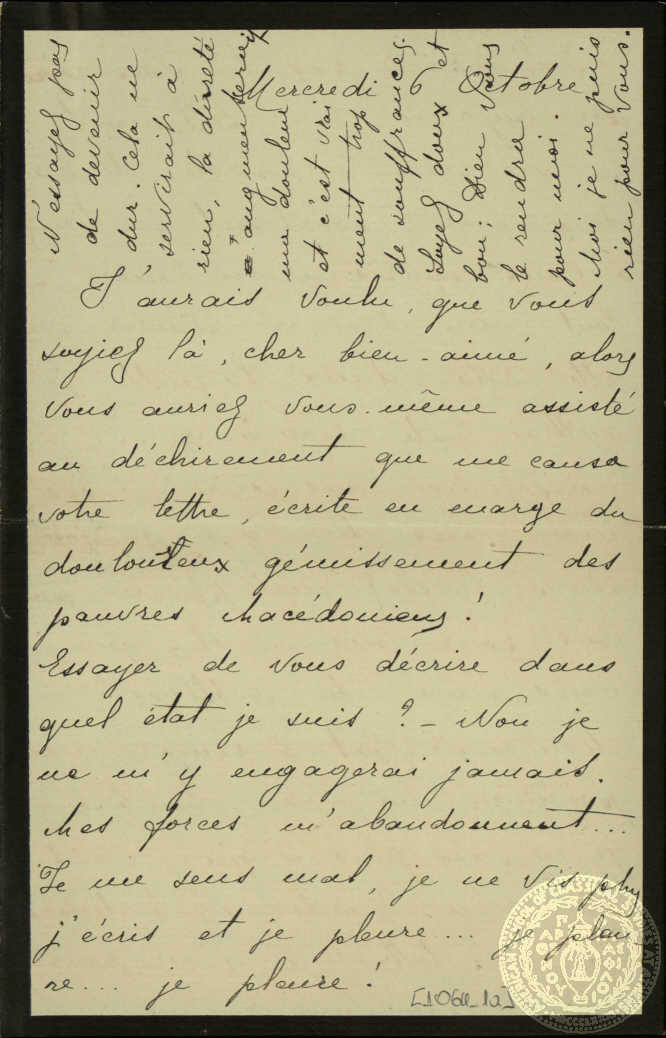 Mercredi 6 Octobre
J'aurais voulu, que vous
soyiez là, cher bien-aimé, alors
vous auriez vous-même assisté
au déchirement que me causa
votre lettre, écrite en marge du
douloureux gémissement des
pauvres Macédoniens!
Essayer de vous décrire dans
quel état je suis? – Non je
ne m'y engagerai jamais.
Mes forces m'abandonnent...
Je me sens mal, je ne vis plus
j'écris et je pleure... je pleu-
re... je pleure!
N'essayez pas
de devenir
dur. Cela ne
servirait à
rien, la dureté
augmenterait
ma douleur
et c'est vrai
ment trop
de souffrances.
Soyez doux et
bon; Dieu vous
le rendra
pour moi.
Moi je ne puis
rien pour vous.
[1064_1a]